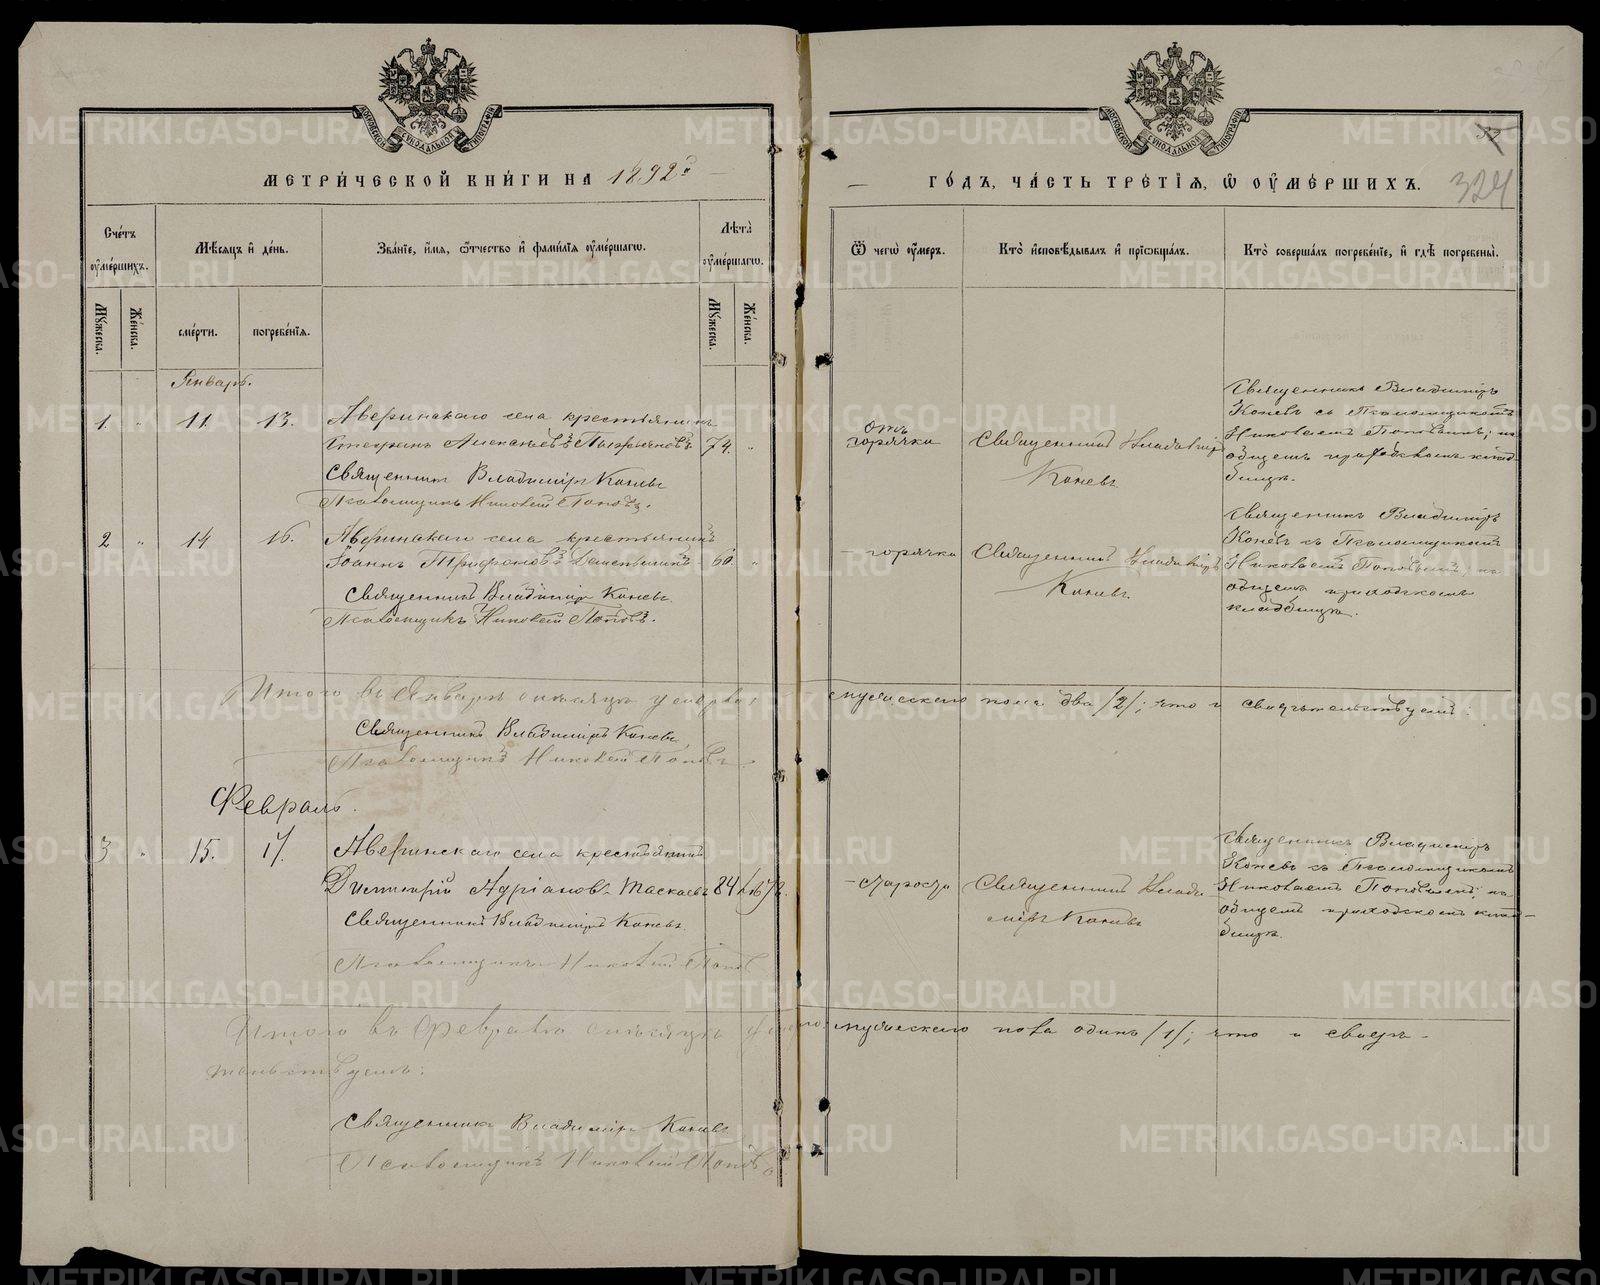 МЕТРИ́ЧЕСКОЙ КНИ́ГИ НА 1892й
ГО́ДЪ, ЧА́СТЬ ТРЕ́ТІЯ, Ѽ ОУ҆МЕ́РШИХЪ.
324
Сче́тъ оу҆ме́ршихъ.
Мѣ́сяцъ и҆ де́нь.
Зва́ніе, и҆́мя, ѻ҆́тчество и҆ фами́лія оу҆ме́ршагѡ.
Лѣ́та оу҆ме́ршагѡ.
Ѿ чегѡ̀ оу҆́меръ.
Кто̀ и҆сповѣ́дывалъ и҆ прїѡбща́лъ.
Кто̀ соверша́лъ погребе́ніе, и҆ гдѣ̀ погребены̀.
Мꙋ́жеска.
Же́нска.
сме́рти.
погребе́нїя.
Мꙋ́жеска.
Же́нска.
Январь.
1. " 11. 13. Аверинскаго села крестьянинъ
Стефанъ Алексѣевъ 74. "
Священникъ Владиміръ Каневъ
Псаломщикъ Николай Поповъ.
отъ горячки
Священникъ Владиміръ
Каневъ
Священникъ Владиміръ
Каневъ съ Псаломщикомъ
Николаемъ Поповымъ; на
общемъ приходскомъ клад-
бищѣ.
2 " 14 16. Аверинскаго села крестьянинъ
Іоаннъ Трифоновъ 60. "
Священникъ Владиміръ Каневъ
Псаломщикъ Николай Поповъ.
- горячки
Священникъ Владиміръ
Каневъ.
Священникъ Владиміръ
Каневъ съ Псаломщикомъ
Николаемъ Поповымъ; на
общемъ приходскомъ
кладбищѣ.
Итого въ Январѣ мѣсяцѣ умерло: мужескаго пола два /2/; что и свидѣтельствуемъ:
Священникъ Владиміръ Каневъ,
Псаломщикъ Николай Поповъ.
Февраль.
3 " 15. 17. Аверинскаго села крестьянинъ
Димитрій Адріановъ Таскаевъ 84
Священникъ Владиміръ Каневъ.
Псаломщикъ Николай Поповъ
- старости
Священникъ Влади-
міръ Каневъ
Священникъ Владиміръ
Каневъ съ Псаломщикомъ
Николаемъ Поповымъ; на
общемъ приходскомъ клад-
бищѣ.
Итого въ Февралѣ мѣсяцѣ умерло мужескаго пола одинъ /1/; что и свидѣ-
тельствуемъ:
Священникъ Владиміръ Каневъ
Псаломщикъ Николай Поповъ
METRIKI.GASO-URAL.RU